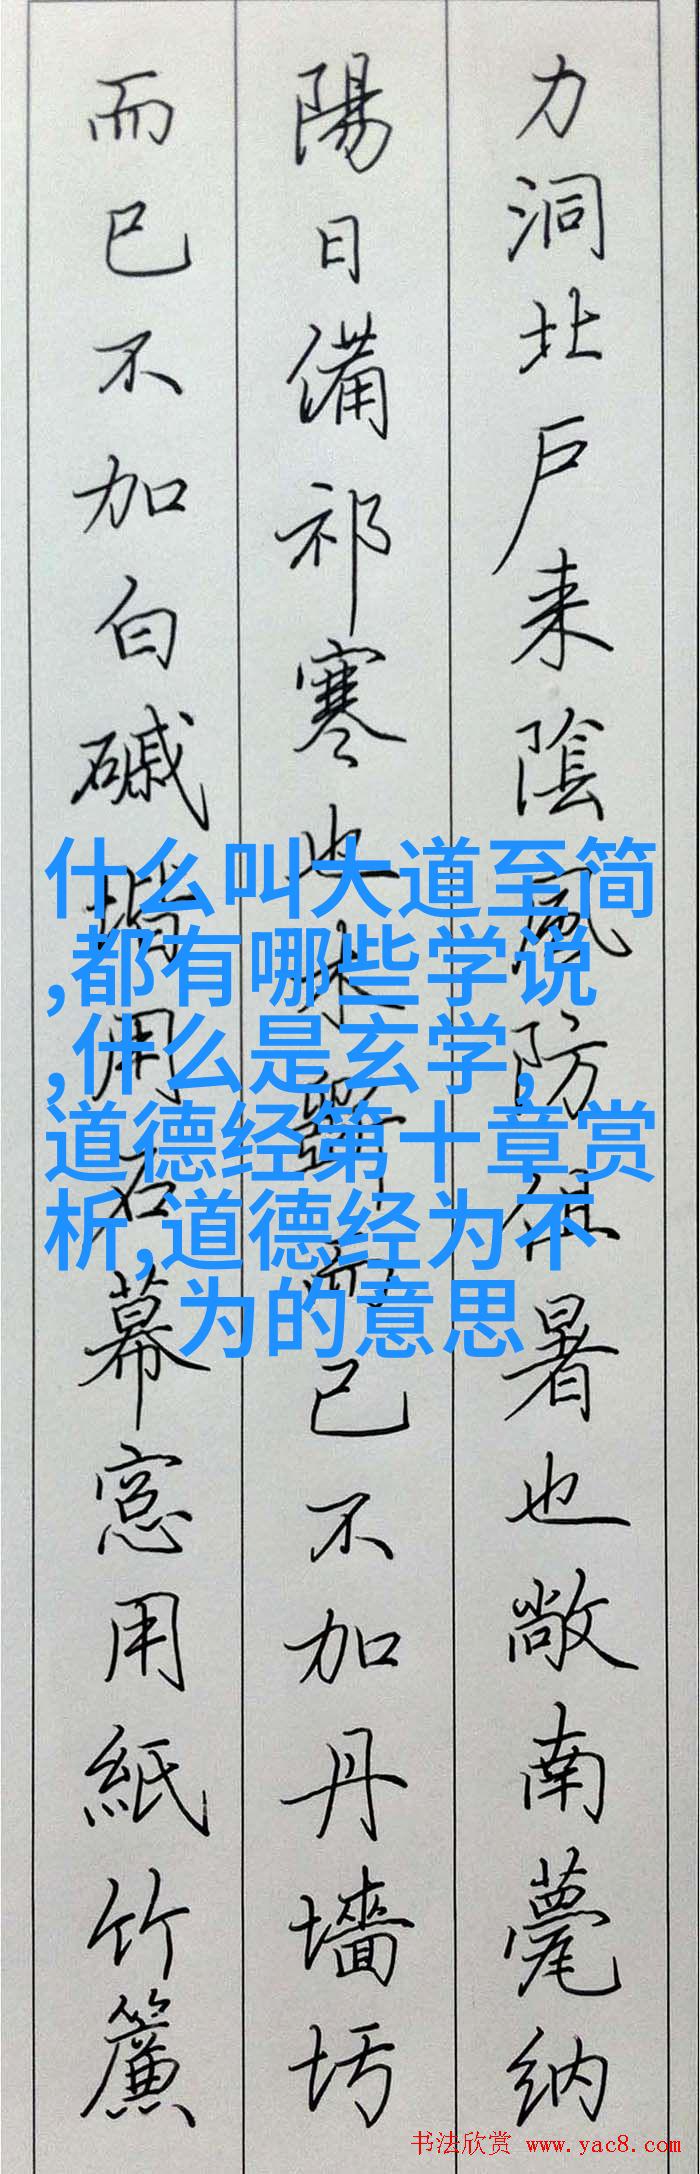 力洞北戶来陰風防徂暑也敞南甍纳
陽日備祁寒也木斲而已不加丹墻圬
而已不加白磩堦用石幂窓用紙竹簾
什么叫大道至简
,都有哪些学说
,什么是玄学,
道德经第十章赏
析,道德经为不
为的意思
书法欣赏 www.yac8.com